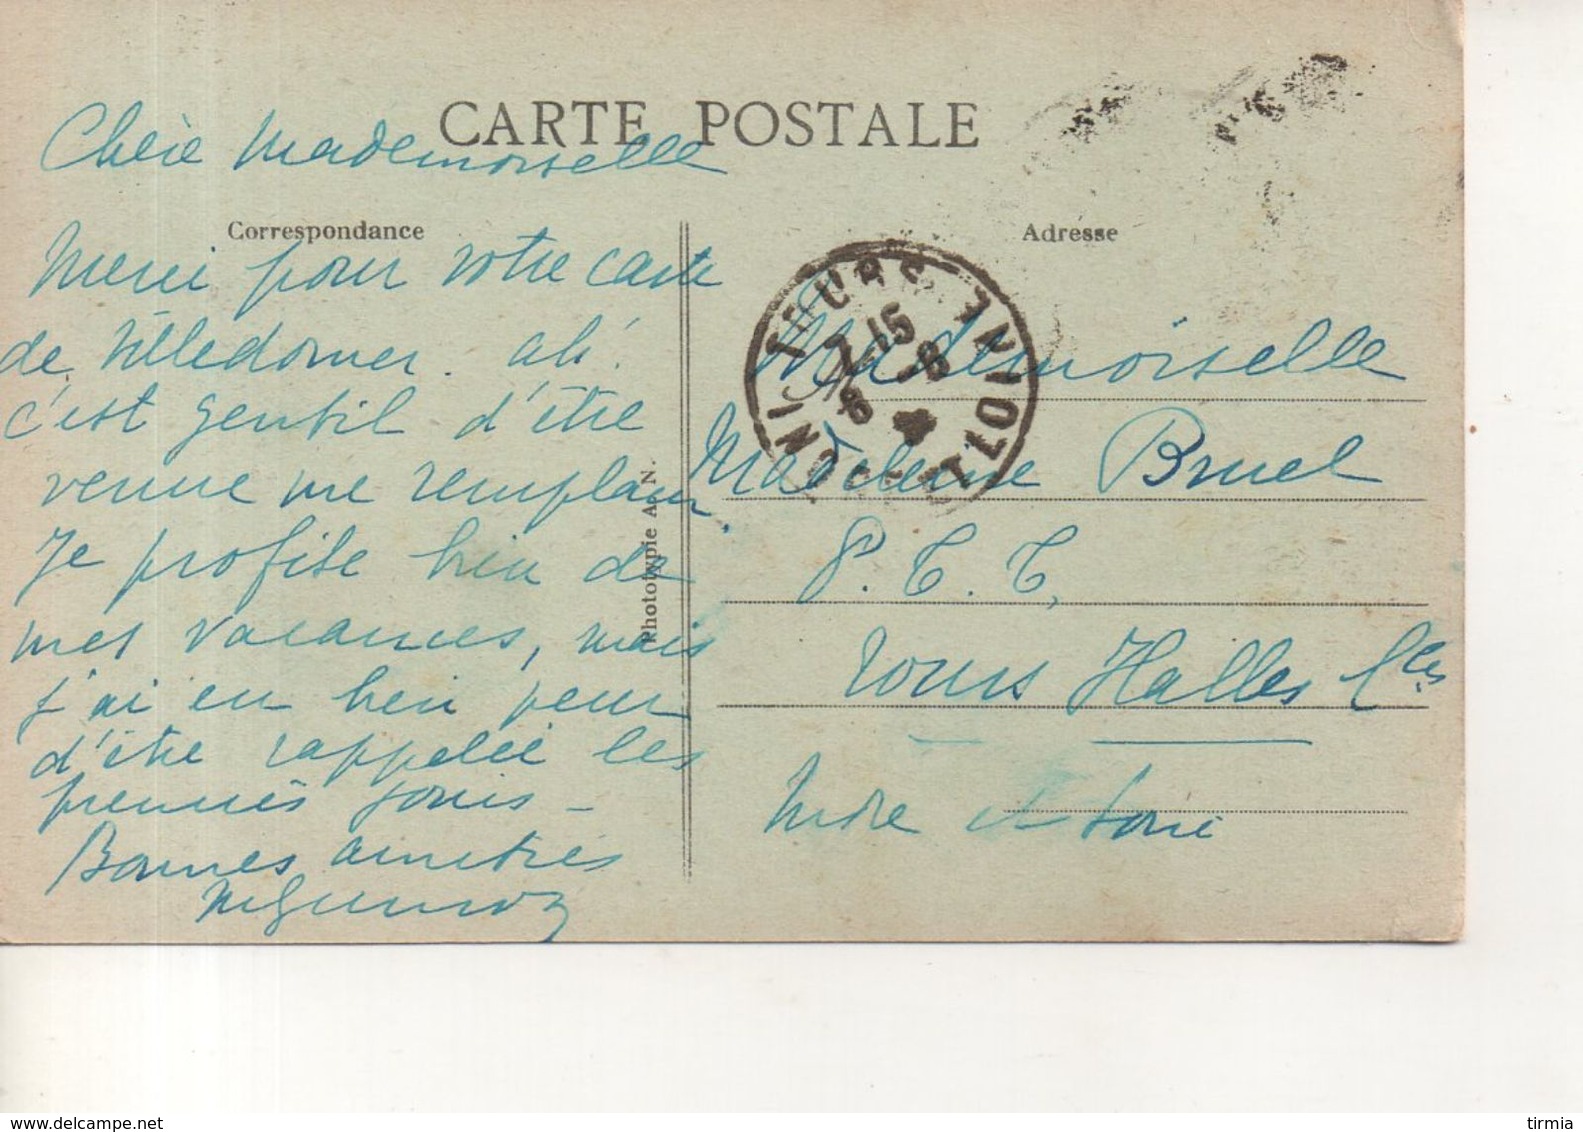 CARTE POSTALE
Chère Mademoiselle
Correspondance
Merci pour votre carte
de Villedomer. ah!
c'est gentil d'être
venue me remplacer.
Je profite bien de
mes vacances, mais
j'ai eu bien peur
d'être rappelée les
premiers jours –
Bonnes amitiés
Phototypie A. N.
Adresse
TOURS
INDRE-ET-LOIRE
Mademoiselle
Madeleine Bruel
P. T. T.
Tours Halles
Indre et Loire
delcampe.net
tirmia